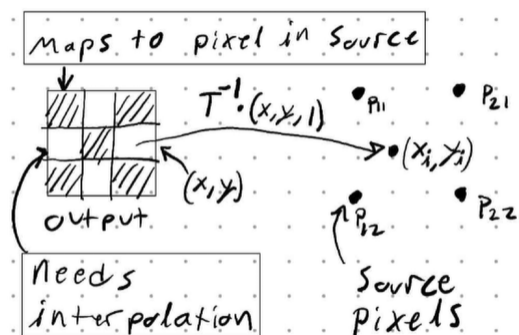 Maps to pixel in source
T⁻¹·(x,y,1)
P11
P21
(xi, yi)
(x,y)
output
P12
P22
Needs
interpolation
Source
pixels